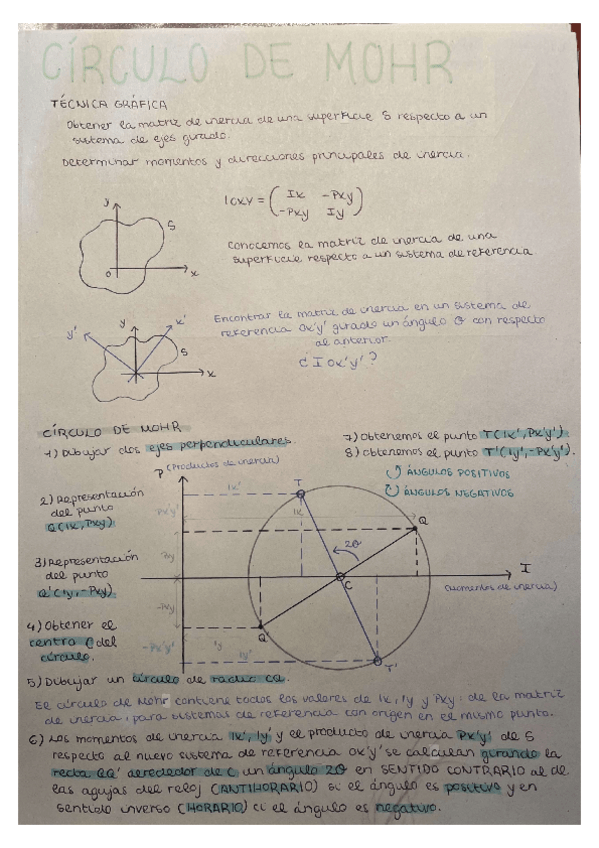 CÍRCULO DE MOHR
TÉCNICA GRÁFICA
Obtener la matriz de inercia de una superficie S respecto a un
sistema de ejes girado.
Determinar momentos y direcciones principales de inercia.
IOXY = ( Ix -Pxy
-Pxy Iy )
y
S
O
x
Conocemos la matriz de inercia de una
superficie respecto a un sistema de referencia
y'
y
x'
S
x
Encontrar la matriz de inercia en un sistema de
referencia Ox'y' girado un ángulo θ con respecto
al anterior.
¿ I Ox'y' ?
CÍRCULO DE MOHR
1) Dibujar dos ejes perpendiculares.
7) Obtenemos el punto T(Ix', Px'y').
8) Obtenemos el punto T'(Iy', -Px'y').
ÁNGULOS POSITIVOS
ÁNGULOS NEGATIVOS
P (Productos de inercia)
2) Representación
del punto
Q(Ix, Pxy)
3) Representación
del punto
Q'(Iy, -Pxy)
4) Obtener el
centro C del
círculo.
Ix'
T
Px'y'
Ix
Q
Pxy
2θ
I
C
(momentos de inercia)
-Pxy
Q'
-Px'y'
Iy
Iy'
T'
5) Dibujar un círculo de radio CQ.
El círculo de Mohr contiene todos los valores de Ix, Iy y Pxy, de la matriz
de inercia, para sistemas de referencia con origen en el mismo punto.
6) Los momentos de inercia Ix', Iy' y el producto de inercia Px'y' de S
respecto al nuevo sistema de referencia Ox'y' se calculan girando la
recta QQ' alrededor de C un ángulo 2θ en SENTIDO CONTRARIO al de
las agujas del reloj (ANTIHORARIO) si el ángulo es positivo y en
sentido inverso (HORARIO) si el ángulo es negativo.